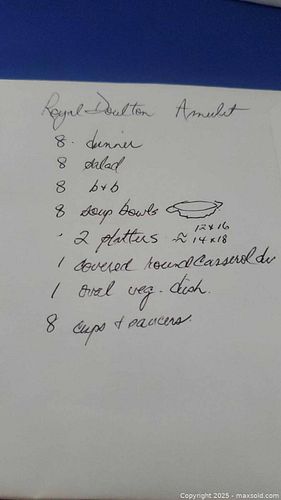 Royal Doulton Amulet
8 - dinner
8 salad
8 b+b
8 soup bowls
12 x 16
2 platters ≈ 14 x 18
1 covered round casserol
1 oval veg. dish.
8 cups + saucers.
Copyright 2025 - maxsold.com